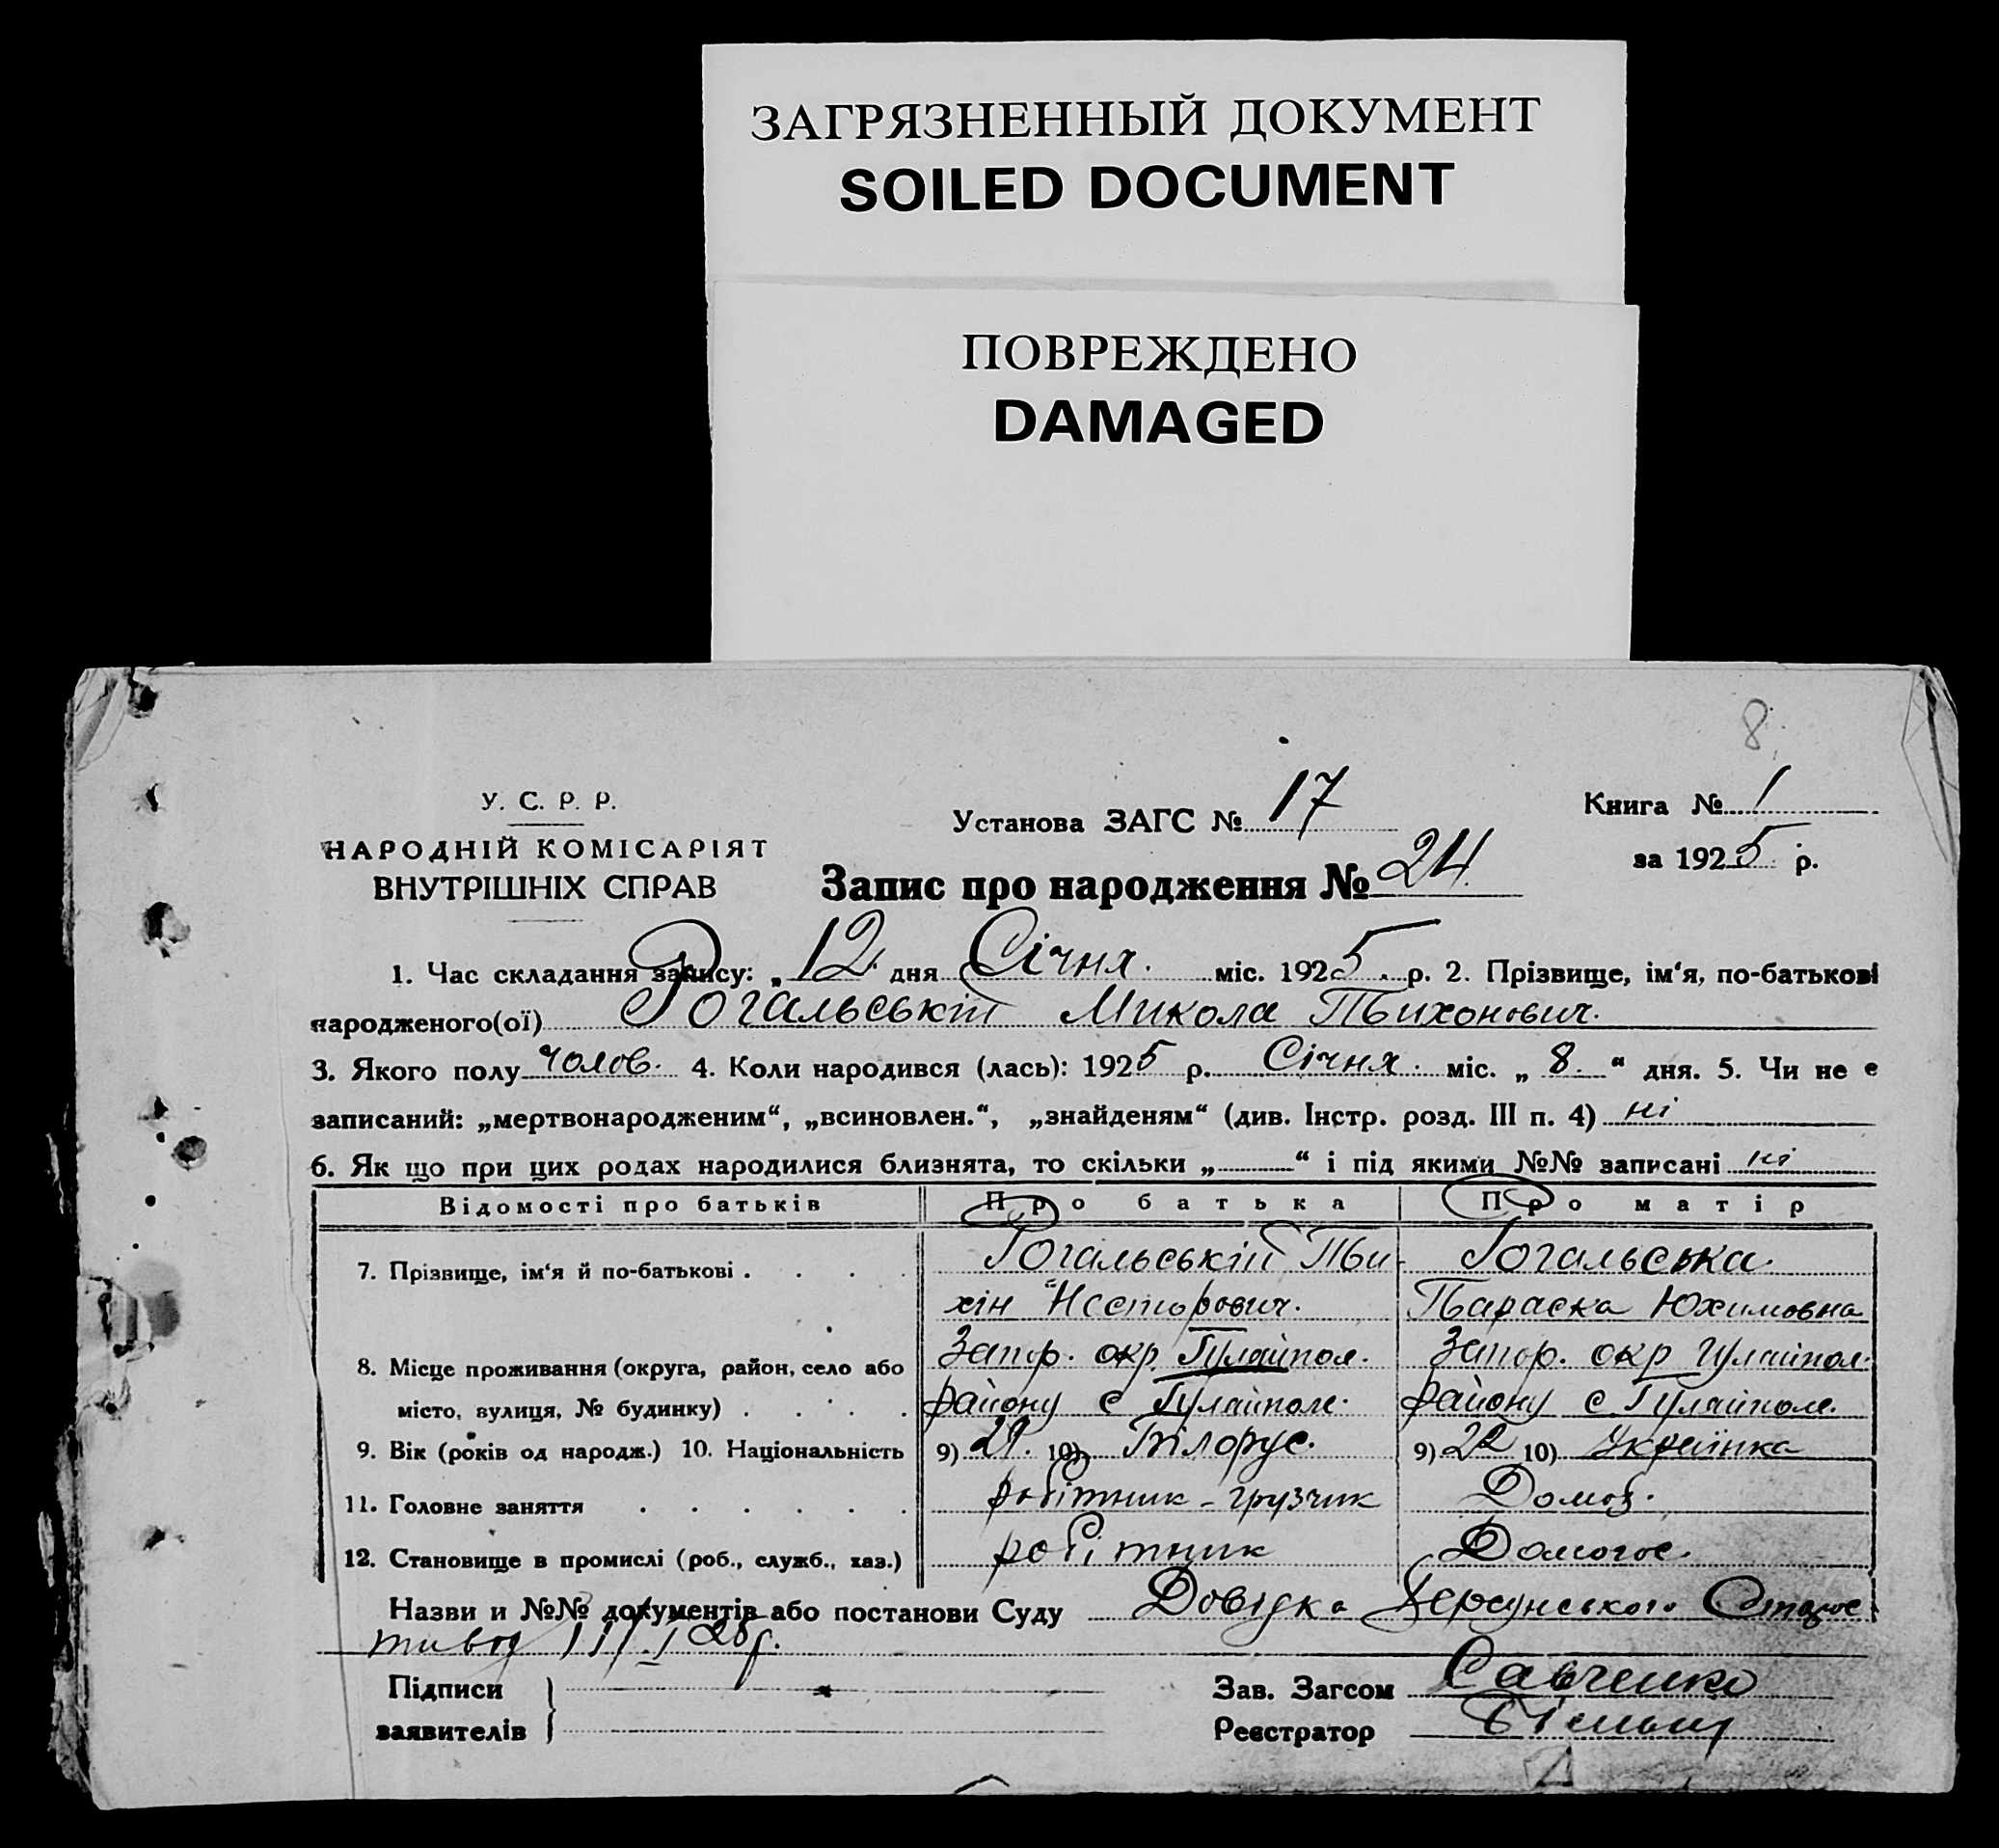 ЗАГРЯЗНЕННЫЙ ДОКУМЕНТ
SOILED DOCUMENT
ПОВРЕЖДЕНО
DAMAGED
8
У. С. Р. Р.
НАРОДНІЙ КОМІСАРІЯТ
ВНУТРІШНІХ СПРАВ
Установа ЗАГС № 17
Книга № 1
за 1925 р.
Запис про народження № 24
1. Час складання запису: „12 дня Січня міс. 1925 р. 2. Прізвище, ім‘я, по-батькові
народженого(ої) Рогальській Микола Тихонович.
3. Якого полу чолов. 4. Коли народився (лась): 1925 р. Січня міс. „ 8. “ дня. 5. Чи не є
записаний: „мертвонародженим“, „всиновлен.“, „знайденям“ (див. Інстр. розд. III п. 4) ні
6. Як що при цих родах народилися близнята, то скільки „ “ і під якими №№ записані ні
Відомості про батьків Про батька Про матір
7. Прізвище, ім‘я й по-батькові Рогальській Ти- Рогальська
хін Несторович. Параска Юхимовна
8. Місце проживання (округа, район, село або Запор. окр. Гуляйпол. Запор. окр Гуляйпол.
місто, вулиця, № будинку) району с Гуляйполе. району с Гуляйполе.
9. Вік (років од народж.) 10. Національність 9) 29. 10) Білорус. 9) 22 10) Украінка
11. Головне заняття робітник - грузчик Домог.
12. Становище в промислі (роб., служб., хаз.) робітник Домогос.
Назви и №№ документів або постанови Суду Довідка
Підписи
заявителів
Зав. Загсом Савченко
Реєстратор